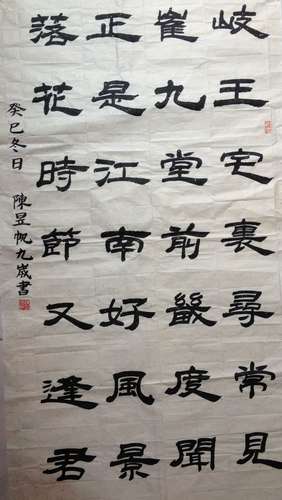 岐王宅裏尋常見
崔九堂前幾度聞
正是江南好風景
落花時節又逢君
癸巳冬日 陳昱帆九歲書